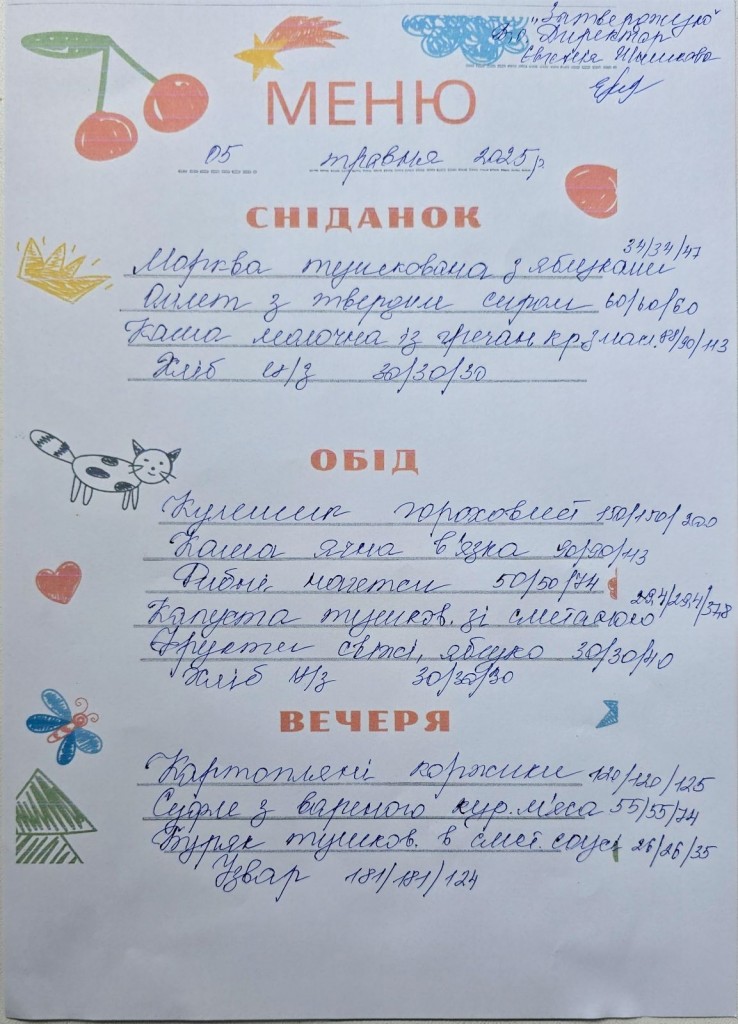 "Затверджую"
В.о. Директор
Євгенія
МЕНЮ
05 травня 2025р
СНІДАНОК
Морква тушкована з яблуками 34/34/47
Омлет з твердим сиром 60/60/60
Каша молочна із гречан. кр з масл. 90/113
Хліб ц/з 30/30/30
ОБІД
Кулешик гороховий 150/150/200
Каша ячна в'язка 90/90/113
Рибні нагетси 50/50/74
Капуста тушков. зі сметаною 29,4/29,4/37,8
Фрукти свіжі, яблуко 30/30/40
Хліб ц/з 30/30/30
ВЕЧЕРЯ
Картопляні коржики 120/120/125
Суфле з вареного кур. м'яса 55/55/74
Буряк тушков. в смет. соусі 26/26/35
Узвар 181/181/124